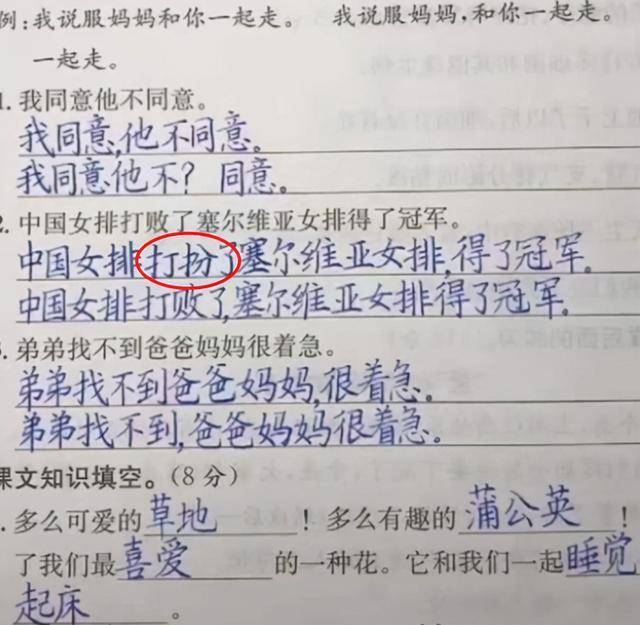 例:我说服妈妈和你一起走。 我说服妈妈,和你一起走。
一起走。
1. 我同意他不同意。
我同意,他不同意。
我同意他不?同意。
2. 中国女排打败了塞尔维亚女排得了冠军。
中国女排打扮了塞尔维亚女排,得了冠军。
中国女排打败了,塞尔维亚女排得了冠军。
. 弟弟找不到爸爸妈妈很着急。
弟弟找不到爸爸妈妈,很着急。
弟弟找不到,爸爸妈妈很着急。
课文知识填空。(8 分)
. 多么可爱的草地!多么有趣的蒲公英!
了我们最喜爱的一种花。它和我们一起睡觉
起床。